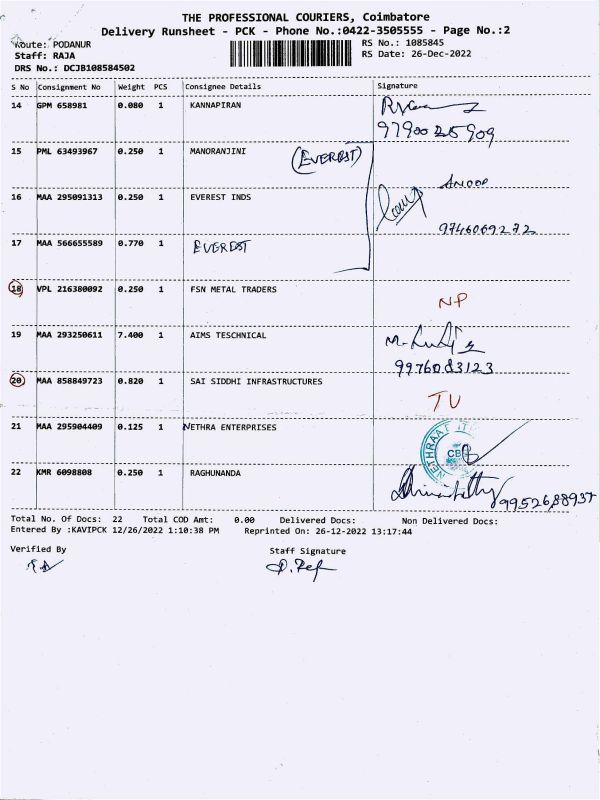 THE PROFESSIONAL COURIERS, Coimbatore
Delivery Runsheet - PCK - Phone No.:0422-3505555 - Page No.:2
Route: PODANUR
RS No.: 1085845
Staff: RAJA
RS Date: 26-Dec-2022
DRS No.: DCJB108584502
S No Consignment No Weight PCS Consignee Details Signature
14 GPM 658981 0.080 1 KANNAPIRAN
15 PML 63493967 0.250 1 MANORANJINI (EVEREST)
16 MAA 295091313 0.250 1 EVEREST INDS ANOOP
9746069272
17 MAA 566655589 0.770 1 EVEREST
18 VPL 216380092 0.250 1 FSN METAL TRADERS NP
19 MAA 293250611 7.400 1 AIMS TESCHNICAL
9976083123
20 MAA 858849723 0.820 1 SAI SIDDHI INFRASTRUCTURES TU
21 MAA 295904409 0.125 1 NETHRA ENTERPRISES
22 KMR 6098808 0.250 1 RAGHUNANDA
Total No. Of Docs: 22 Total COD Amt: 0.00 Delivered Docs: Non Delivered Docs:
Entered By :KAVIPCK 12/26/2022 1:10:38 PM Reprinted On: 26-12-2022 13:17:44
Verified By Staff Signature